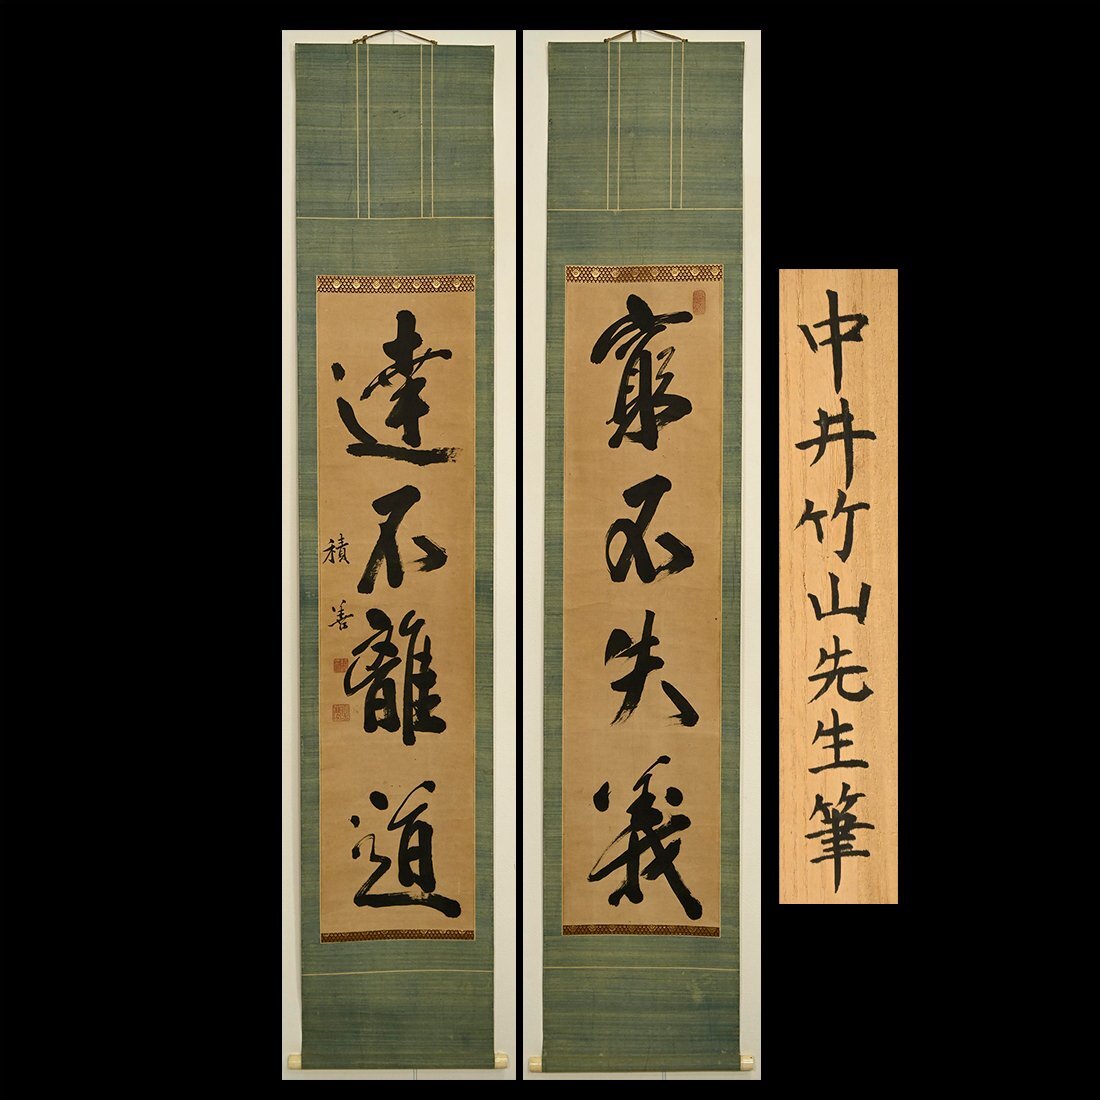 窮不失義
達不離道
積善
中井竹山先生筆